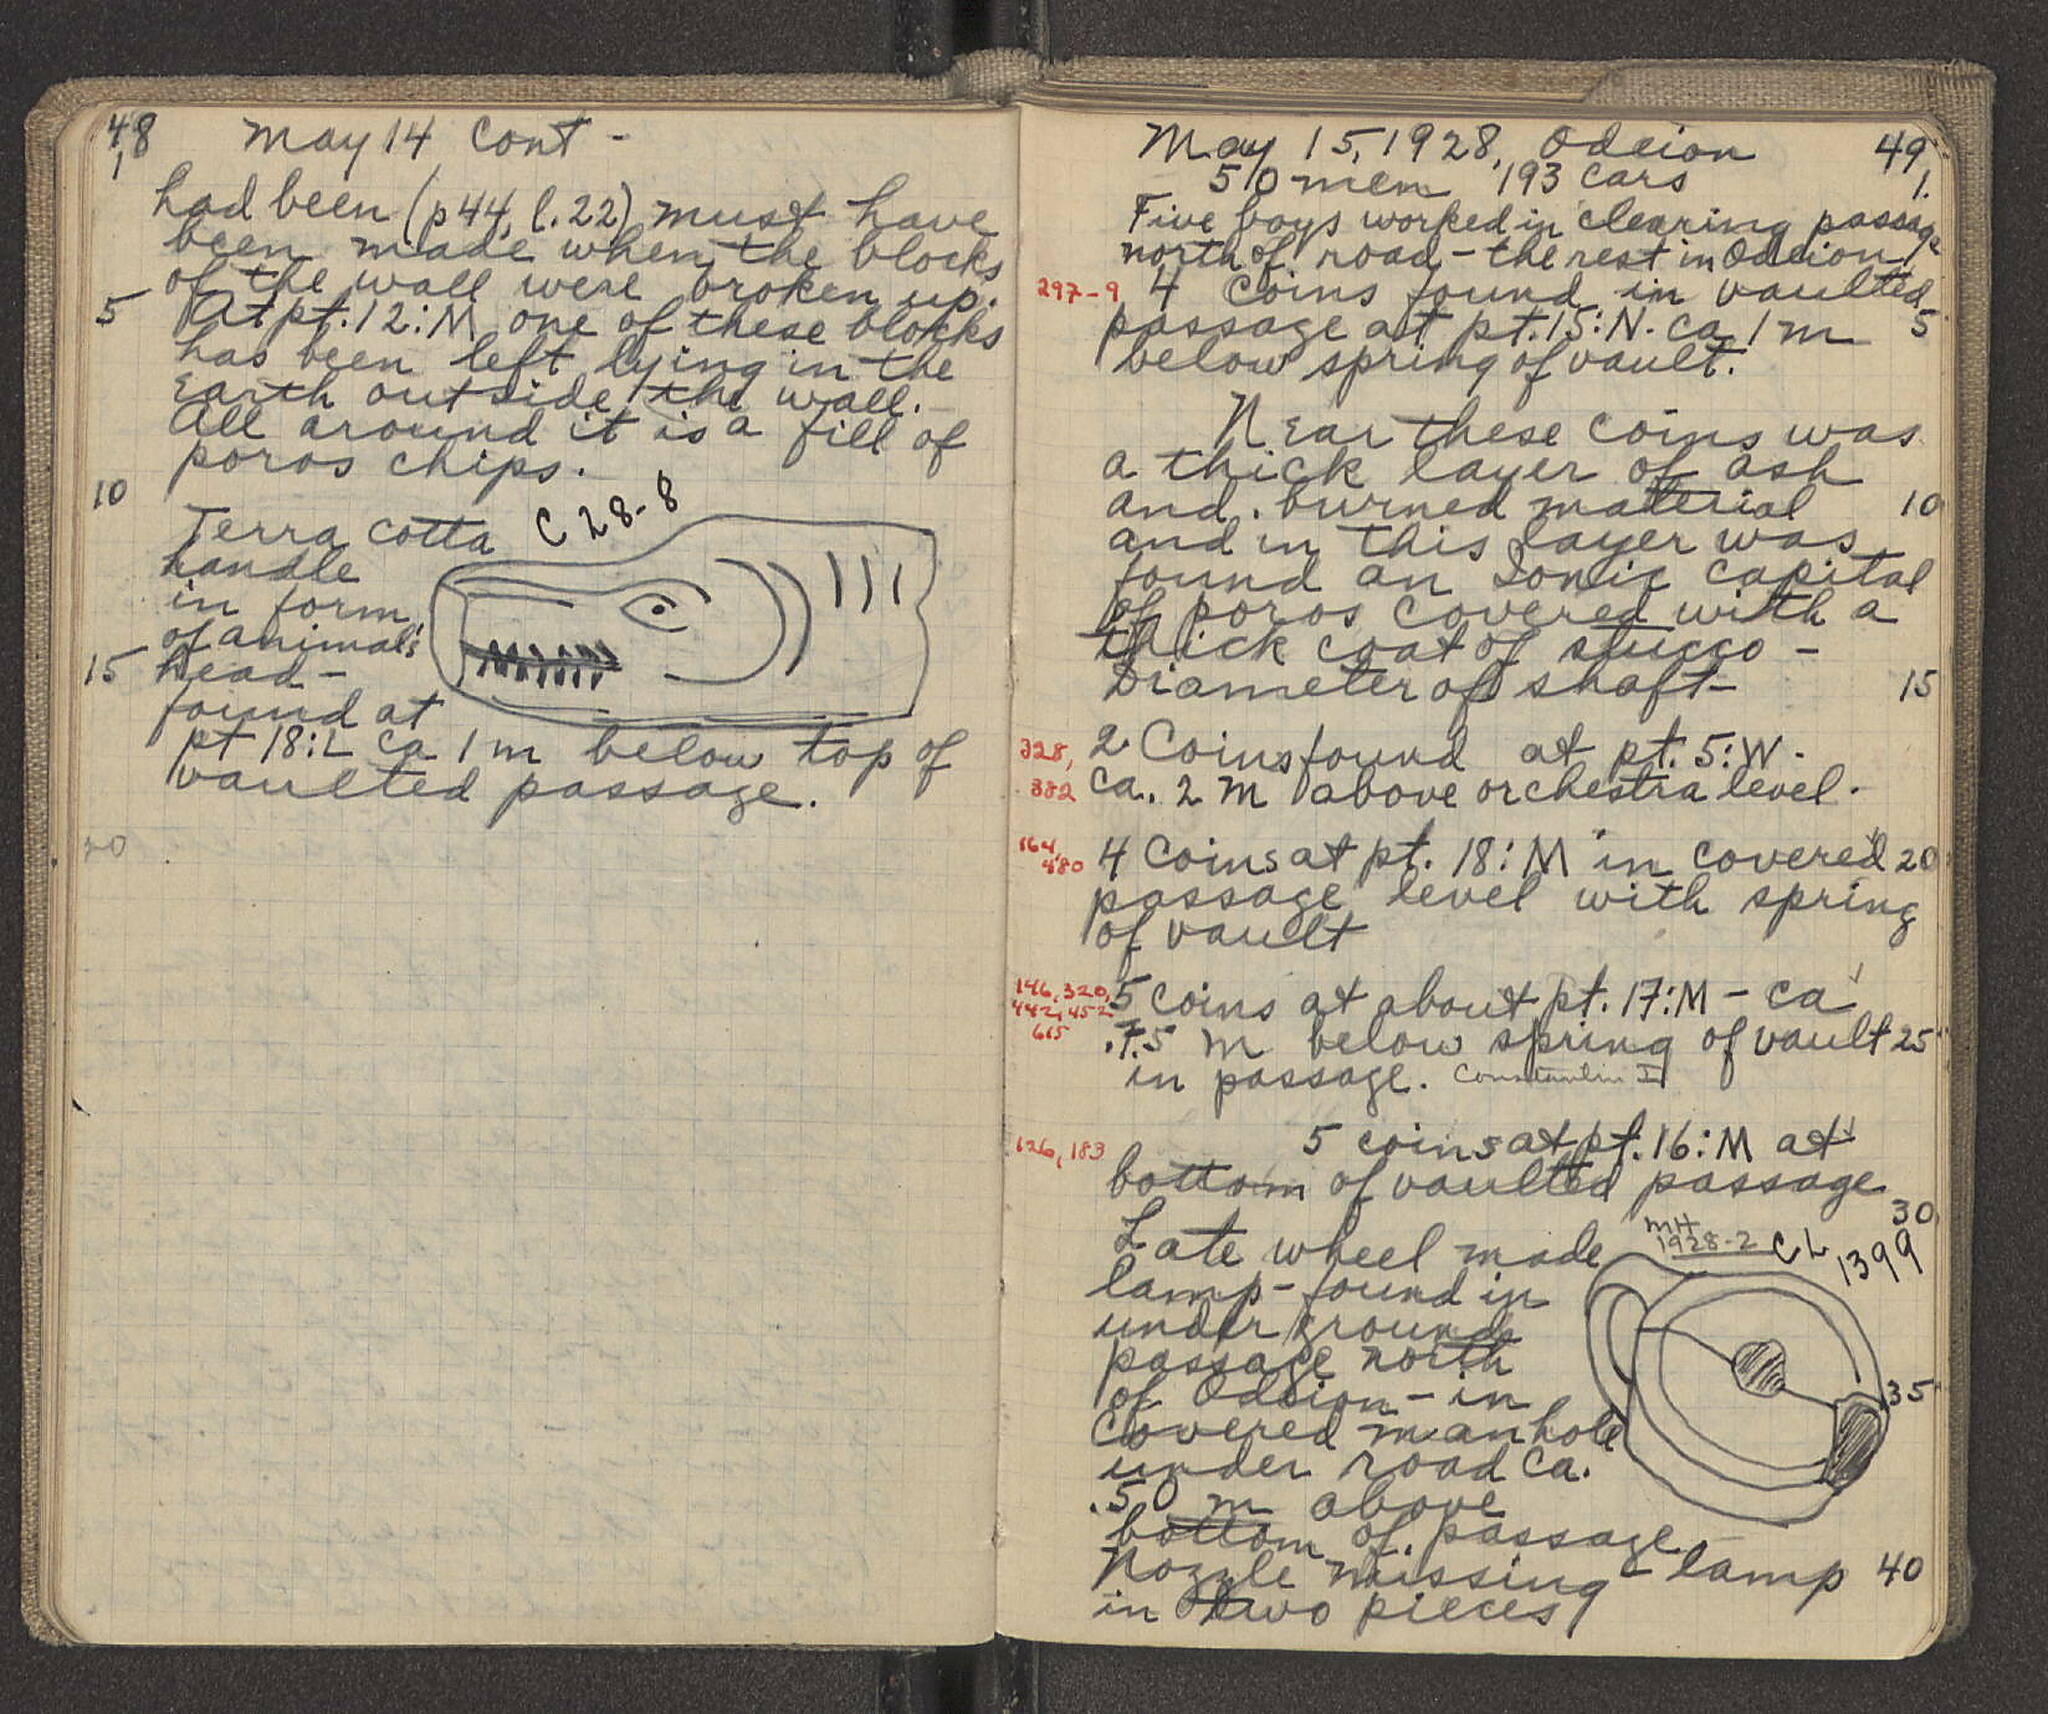 48 May 14 cont -
1
had been (p44, l.22) must have
been made when the blocks
of the wall were broken up.
5 At pt. 12:M one of these blocks
has been left lying in the
Earth outside the wall.
All around it is a fill of
poros chips.
10
Terra cotta C 28-8
handle
in form
of animal's
15 head -
found at
pt 18:L ca 1 m below top of
vaulted passage.
20
May 15, 1928, Odeion 49
50 men 193 cars 1.
Five boys worked in clearing passage
north of road - the rest in Odeion
297-9 4 Coins found in vaulted
passage at pt. 15:N. ca 1 m 5
below spring of vault.
Near these coins was
a thick layer of ash
and burned material 10
and in this layer was
found an Ionic capital
of poros covered with a
thick coat of stucco -
Diameter of shaft- 15
328, 2 Coins found at pt. 5:W.
382 ca. 2 m above orchestra level.
164, 480 4 Coins at pt. 18:M in covered 20
passage level with spring
of vault
146, 320, 5 coins at about pt. 17:M - ca
442, 452 .75 m below spring of vault 25
615 in passage. Constantin I
126, 183 5 coins at pt. 16:M at
bottom of vaulted passage
30
Late wheel made MH 1928-2 CL 1399
lamp - found in
under ground
passage north
of Odeion - in 35
covered manhole
under road ca.
.50 m above
bottom of passage
Nozzle missing - lamp 40
in two pieces